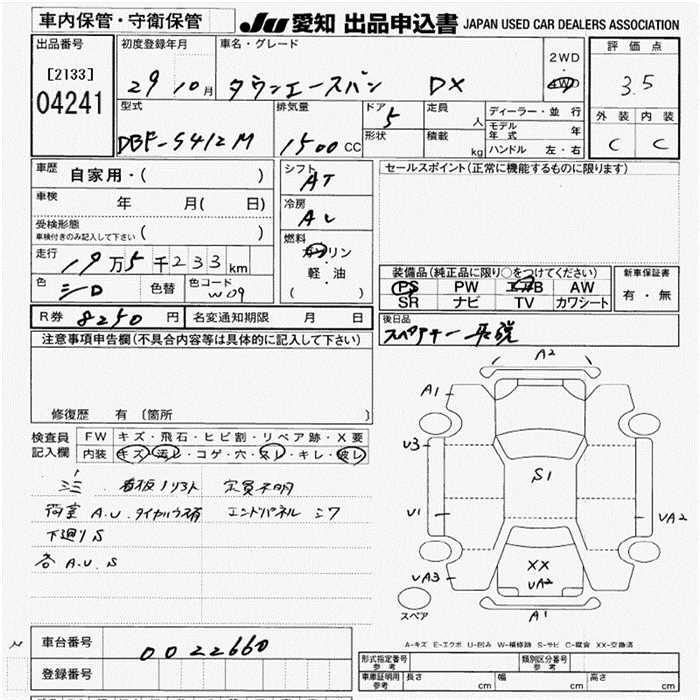 車内保管・守衛保管 JU 愛知 出品申込書 JAPAN USED CAR DEALERS ASSOCIATION
出品番号 [2133] 04241
初度登録年月 29 10月
車名・グレード タウンエースバン DX
2WD・4WD
評価点 3.5
外装 C 内装 C
型式 DBF-S412M
排気量 1500 CC
ドア 5 形状
定員 人
積載 kg
ディーラー・並行
モデル年式 年
ハンドル 左・右
車歴 自家用・( )
車検 年 月( 日)
受検形態 車検付きのみ記入して下さい ( )
走行 19万5千233km
色 シロ 色替 色コード W09
シフト AT
冷房 AC
燃料 ガソリン 軽・油 ( )
セールスポイント(正常に機能するものに限ります)
装備品(純正品に限り○をつけてください)
PS PW エアB AW
SR ナビ TV カワシート
新車保証書 有・無
R券 8250円 名変通知期限 月 日
後日品
注意事項申告欄(不具合内容等は具体的に記入して下さい)
修復歴 有 〔箇所 〕
検査員記入欄
FW キズ・飛石・ヒビ割・リペア跡・X要
内装 キズ・汚レ・コゲ・穴・スレ・キレ・破レ
定員不明
荷室 A.U. タイヤハウス有 エンドパネル
下廻りS
各A.U.S
A2
A1
U3
S1
U1
UA2
XX
UA3
UA2
A1
スペア
A-キズ E-エクボ U-凹み W-補修跡 S-サビ C-腐食 XX-交換済
車台番号 0022660
登録番号
形式指定番号 参考 類別区分番号 参考
車庫証明用 参考 長さ cm 幅 cm 高さ cm